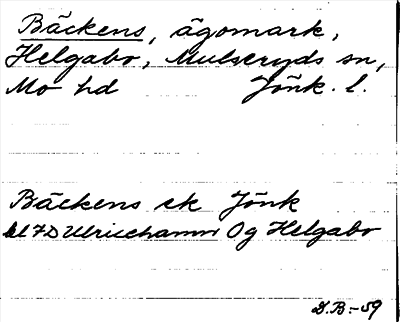 Bäckens, ägomark,
Helgabo, Mulseryds sn,
Mo hd Jönk. l.
Bäckens ek Jönk
bl 7D Ulricehamn Og Helgabo
D.B.-59